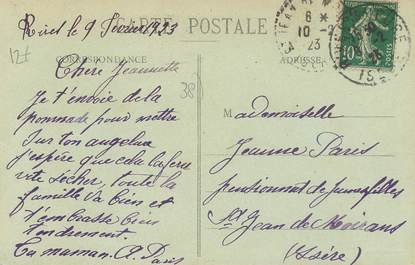 le 9 Février 1923
CARTE POSTALE
12f
CORRESPONDANCE
Chère Jeannette
Je t'envoie de la
pommade pour mettre
sur ton angelure
j'espère que cela fera
vite sécher, toute la
famille va bien et
t'embrasse bien
tendrement.
Ta maman. A. Paris
38
Mademoiselle
Jeanne Paris
pensionnat de jeunes filles
St Jean de Moirans
(Isère)
6 *
10 -2
23
10
POSTES